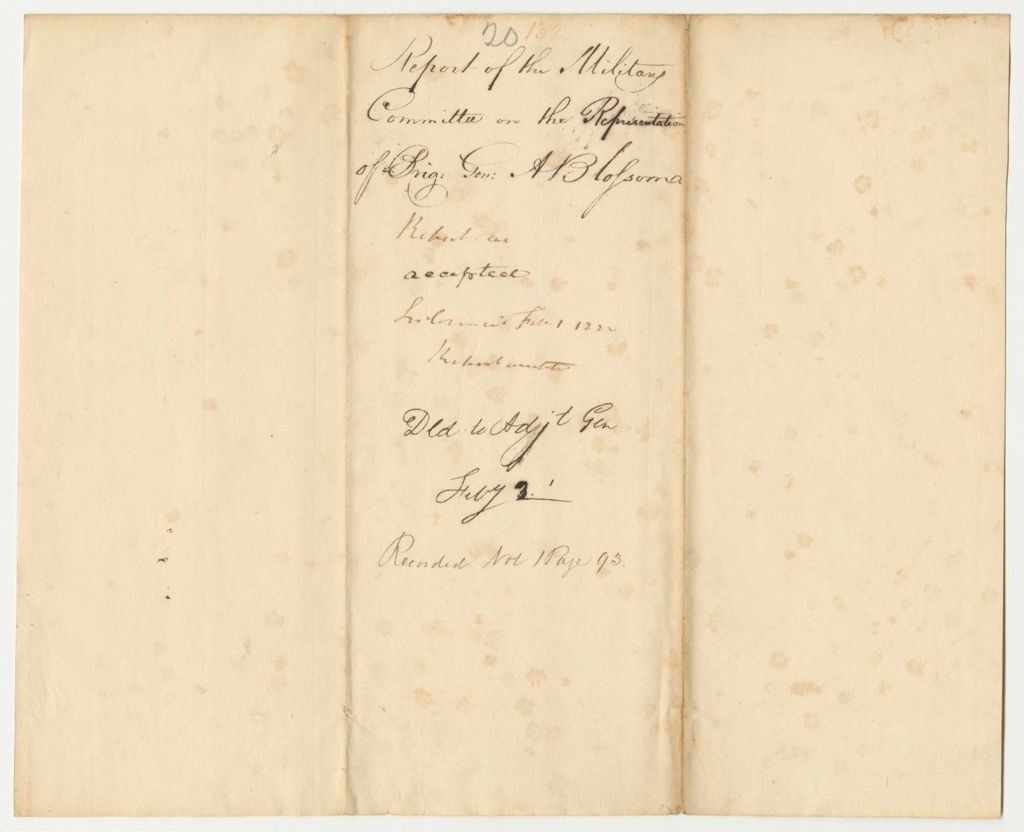 20 132
Report of the Military
Committee on the Representation
of Brig: Gen: A Blossom
Report
accepted
In Council Feb. 1 1822
Report
Dld to Adjt Gen
Feby 2.
Recorded Vol 1 Page 93.